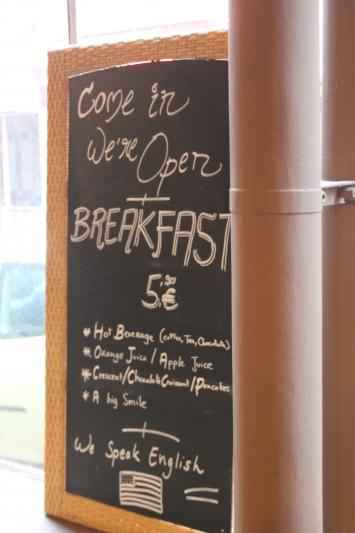 Come in
We're Open
BREAKFAST
5,90€
* Hot Beverage (coffee, Tea, Chocolate)
* Orange Juice / Apple Juice
* Croissant/Chocolate Croissant/Pancakes
* A big Smile
We Speak English